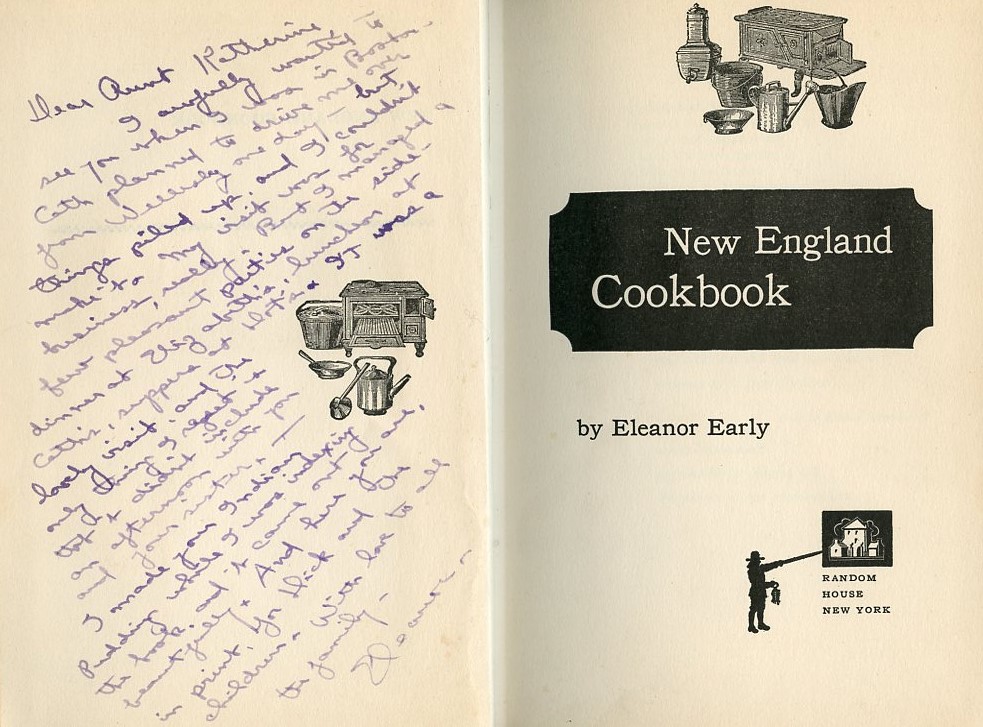 Dear Aunt Katherine
I awfully wanted to
see you when I was in Boston
Cath planned to drive me over
from Wellesley one day — but
things piled up, and I couldn't
make it. My visit was for
business, really. But I managed a
few pleasant parties on the side —
dinner at Elizabeth's, luncheon at
Cath's, suppers at
lovely visit, and the
only thing I regret is
that it didn't include
an afternoon with you
and your sister. —
I made your Indian
Pudding while I was indexing
the book, and it came out
beautifully. And here you are,
in print, you Dick and the
children. With love to all
the family —
Eleanor —
New England
Cookbook
by Eleanor Early
RANDOM
HOUSE
NEW YORK